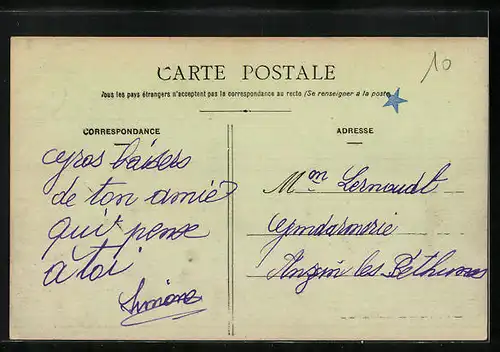 CARTE POSTALE
Tous les pays étrangers n'acceptent pas la correspondance au recto (Se renseigner à la poste
10
CORRESPONDANCE
Gros baisers
de ton amie
qui pense
à toi
Simone
ADRESSE
Mon Lernoudt
Gendarmerie
Anzin les Béthunes